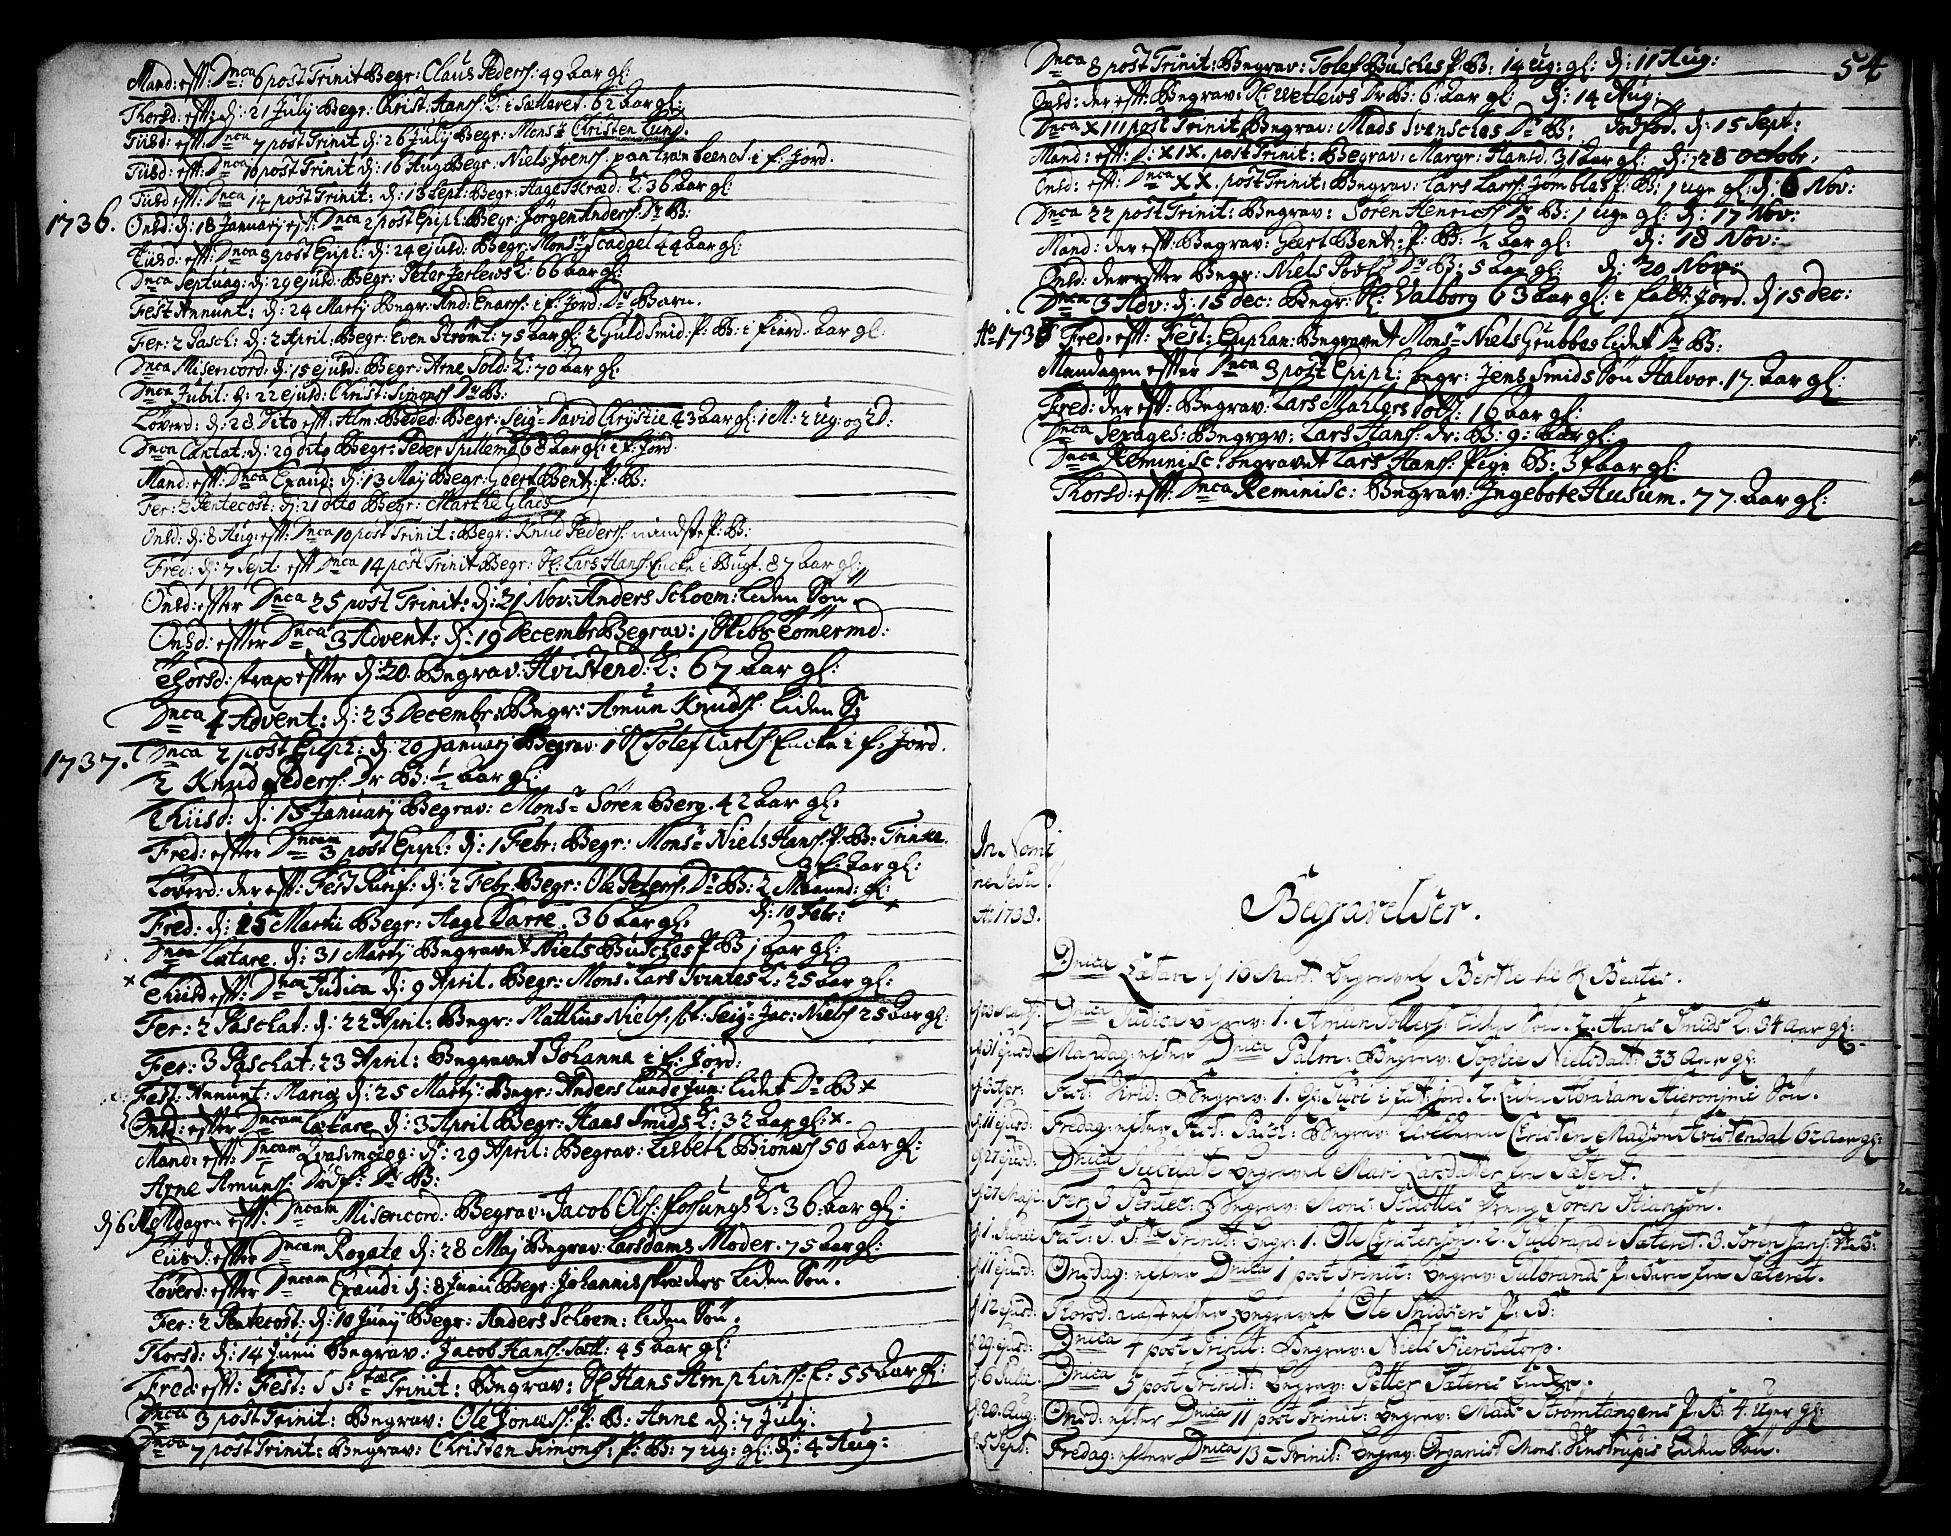 Mand: eft: Dnca 6 post Trinit Begr: Claus Peders: 49 Aar gl:
Thorsd: eft: d: 21 July Begr: Christ: Hans: K: i Sætteret. 62 Aar gl:
Tiisd: eft: Dnca 7 post Trinit d: 26 July Begr: Mons:r Christen Lund.
Tiisd: eft: Dnca 10 post Trinit d: 16 Aug Begr: Niels Joens: i f: Jord.
Tiisd: eft: Dnca 14 post Trinit: d: 13 Sept: Begr: Aage K: 36 Aar gl:
1736. Onsd: d: 18 January eft: Dnca 2 post Epiph: Begr: Jörgen Anders: Dr B:
Tiisd: eft: Dnca 3 post Epiph: d: 24 ejusd: Begr: Mons:r Scadget 44 Aar gl:
Dnca Septuag: d: 29 ejusd: Begr: Peter Jerlews K: 66 Aar gl:
Fest Annunt: d: 24 Martij Begr: And: Enars: i f: Jord: Dr Barn.
Fer: 2 Pasch: d: 2 April: Begr: Even Strömt: 75 Aar gl: 2 Guldsmid: P: B: i fierd: Aar gl:
Dnca Misericord: d: 15 ejusd: Begr: Arne Sold: K: 70 Aar gl:
Dnca Jubil: d: 22 ejusd: Christ: Simons: Dr B:
Löverd: d: 28 Dito eft: Alm: Bededag: Begr: Seig:r David Chrystie 43 Aar gl: 1 M: 2 ug: og 2 D:
Dnca Cantat: d: 29 dito Begr: Peder Spillemd 68 Aar gl: i f: Jord
Mand: eft: Dnca Exaud: d: 13 Maj Begr: Geert Bentz: P: B:
Fer: 2 Pentecost: d: 21 dito Begr: Marthe Glads
Onsd: d: 8 Aug: eft: Dnca 10 post Trinit: Begr: Knud Peders: mindste P: B:
Fred: d: 7 Sept: eft Dnca 14 post Trinit Begr: Sl: Lars Hans: Encke i Bugt. 87 Aar gl:
Onsd: efter Dnca 25 post Trinit: d: 21 Nov: Anders Schoem: liden Sön.
Onsd: efter Dnca 3 Advent: d: 19 Decembr: Begrav: 1 Skibs Tömermd:
Thorsd: strax efter d: 20. Begrav: Hvistend: K: 67 Aar gl:
Dnca 4 Advent: d: 23 Decembr: Begr: Amun Knuds: liden S:
1737. Dnca 2 post Epiph: d: 20 Januarij Begrav: 1 Sl Tolef Carls: Encke i f: Jord.
2 Knud Peders: Dr B: ½ Aar gl:
Thiisd: d: 15 Januarij Begrav: Mons:r Sören Berg. 42 Aar gl:
Fred: efter Dncam 3 post Epiph: d: 1 Febr: Begr: Mons:r Niels Hans: P: B: Trinke.
3 f: Aar gl:
Löverd: der eft: Fest Purif: d: 2 Febr: Begr: Ole Peters: Dr B: 2 Maaned: gl:
d: 10 Febr:
Fred: d: 15 Martii Begr: Aage Darre. 36 Aar gl:
Dnca Lætare. d: 31 Martij Begravet Niels Busches P: B 1 Aar gl:
Thiisd eft: Dnca Judica d: 9 April. Begr: Mons. Lars Svintes K: 25 Aar gl:
Fer: 2 Paschat: d: 22 April: Begr: Mathius Niels: Seig:r Jac: Niels 25 Aar gl:
Fer: 3 Paschat: 23 April: Begravet Johanna i f: Jord:
Fest: Annunt: Mariæ d: 25 Martij: Begr: Anders Lunde Jun: lidet Dr B x
Onsd: efter Dncam Lætare d: 3 April Begr: Hans Smids K: 32 Aar gl: x.
Mand: eft: Dncam Qvasimoigg: d: 29 April: Begrav: Lisbeth Biones 50 Aar gl:
Arne Amuns: Dödf: Dr B:
d: 6 Maj Mdagen eft: Dncam Misericord: Begrav: Jacob Ols: K: 36. Aar gl:
Tiisd: efter Dncam Rogate d: 28 Maj Begrav: Larsdams Moder. 75 Aar gl:
Löverd: efter Dncam Exaudi d: 8 Junii Begr: Johannis liden Sön.
Fer: 2 Pentecost: d: 10 Junij Begr: Anders Schoem: liden Sön.
Thorsd: d: 14 Junii Begrav: Jacob Hans: 45 Aar gl:
Fred: eft: Fest: S S:tæ Trinit: Begrav: Sl Hans Amphins: E: 55 Aar gl:
Dnca 3 post Trinit: Begrav: Ole Jonas: P: B: Anne d: 7 July:
Dnca 7 post Trinit: Begrav: Christen Simons: P: B: 7 ug: gl: d: 4 Aug:
54
Dnca 8 post Trinit: Begrav: Tolef Busches P: B: 14 ug: gl: d: 11 Aug:
Onsd: der eft: Begrav: Sl: Wetlews Dr B: 6 Aar gl: d: 14 Aug:
Dnca XIII post Trinit Begrav: Mads Svensches Dr B: Dödfød. d: 15 Sept:
Mand: eft: D: XIX. post Trinit: Begrav: Margr: Hansd. 31 Aar gl: d: 28 octobr:
Onsd: eft: Dnca XX. post Trinit: Begrav: Lars Lars: Jomblas P: B: 1 uge gl: d: 6 Nov:
Dnca 22 post Trinit: Begrav: Sören Henrichs Dr B: 1 uge gl: d: 17 Nov:
Mand: der eft: Begrav: Geert Bentz: P: B: ½ Aar gl: d: 18 Nov:
Onsd: derefter Begr: Niels Povls: Dr B: 5 Aar gl: d: 20 Nov:
Dnca 3 Adv: d: 15 dec: Begr: Sl: Valborg 63 Aar gl: i fatt: Jord. d: 15 dec:
Ao 1738 Fred: eft: Fest: Epiphan: Begravet Mons:r Niels Grubbes lidet Dr B:
Mandagen efter Dnca 3 post Epiph: begr: Jens Smids Sön Halvor. 17. Aar gl:
Fred: der eft: Begrav: Lars Matters 16 Aar gl:
Dnca Sexages: Begrav: Lars Hans: Dr: B: 9: Aar gl:
Dnca Reminisc: begravet Lars Hans: Pige B: 3 f Aar gl:
Thorsd: eft: Dnca Reminisc: Begrav: Ingebore Husum. 77. Aar gl:
In Nomi
ne Jesu
Ao 1738.
Begravelser.
Dnica Lætare d 16 Mart: begravet Berthe
Dnica Judica begrav: 1. Amun liden Sön. 2. Hans Smids K: 34 Aar gl:
d 31 ejusd. Mandag: efter Dnica Palm: Begrav: Sophie Nielsdatt: 33 Aar gl:
d 3 Apr: Fest: Virid: Begrav: 1. Gl: Guri i fatt: Jord. 2. Liden Abraham Hieronymi Sön.
d 11 ejusd. Fredag: efter Fest: Pasch: Begrav: Christen Madsön Hvistendal 62 Aar gl:
d 27 ejusd: Dnica Jubilate begravet Mari Larsdatter fra Sæteret.
Fer: 3 Pentec: Begrav: Mons: Schottes dreng Sören Stianson.
d 1. Junii Fest: S. S:tæ Trinit: begr: 1. Ole Gretenson. 2. Gulbrand i Sæteret. 3. Sören Jans: Dr B:
d 11 ejusd: Onsdag: efter Dnica 1 post Trinit: begrav: Gulbrands P: Barn fra Sæteret.
d 12 ejusd: Thorsd: næst efter begravet Ole Snidkers P: B:
d 29. ejusd: Dnica 4 post Trinit: Begrav: Niels Bierchetorp.
d 6 Julii. Dnica 5 post Trinit: begrav: Petter Sæteres Encke.
d: 20. Aug. Onsd: efter Dnica 11 post Trinit: begrav: Mads Strömtangens P: B: 4. Uger gl:
d: 5 Sept: Fredag: efter Dnica 13 Trinit: begrav: Organist Mons: Vinstrupis Liden Sön.